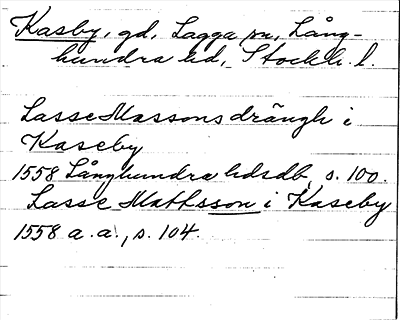 Kasby, gd, Lagga sn, Lång-
hundra hd, Stockh. l.
Lasse Massons drängh i
Kaseby
1558 Långhundra hdsdb, s. 100.
Lasse Mathsson i Kaseby
1558 a. a., s. 104.